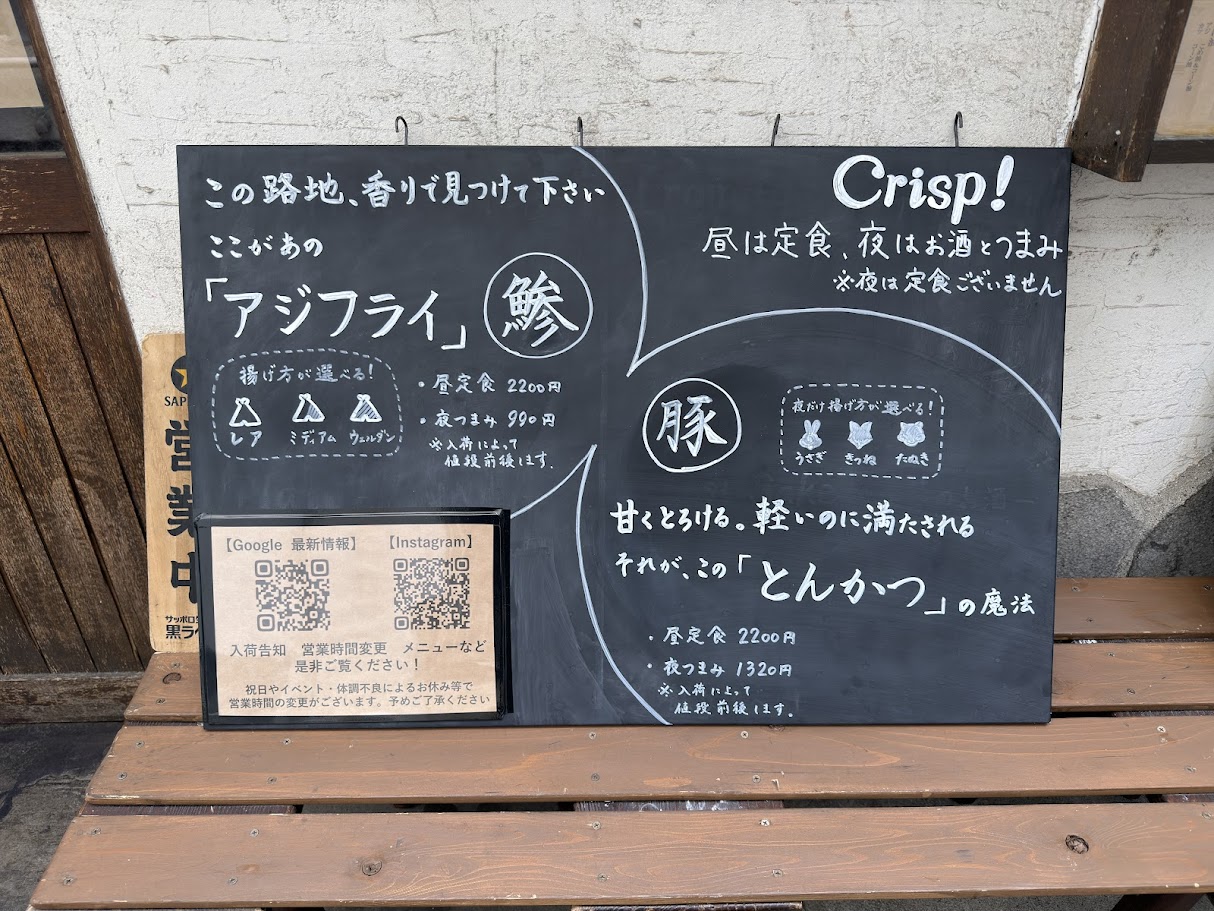 この路地、香りで見つけて下さい
ここがあの
「アジフライ」
鯵
揚げ方が選べる!
レア ミディアム ウェルダン
・昼定食 2200円
・夜つまみ 990円
※入荷によって
値段前後します.
Crisp!
昼は定食、夜はお酒とつまみ
※夜は定食ございません
豚
夜だけ揚げ方が選べる!
うさぎ きつね たぬき
甘くとろける。軽いのに満たされる
それが、この「とんかつ」の魔法
・昼定食 2200円
・夜つまみ 1320円
※入荷によって
値段前後します.
【Google 最新情報】 【Instagram】
入荷告知 営業時間変更 メニューなど
是非ご覧ください!
祝日やイベント・体調不良によるお休み等で
営業時間の変更がございます。予めご了承ください
SAP
営業中
サッポロ
黒ラ